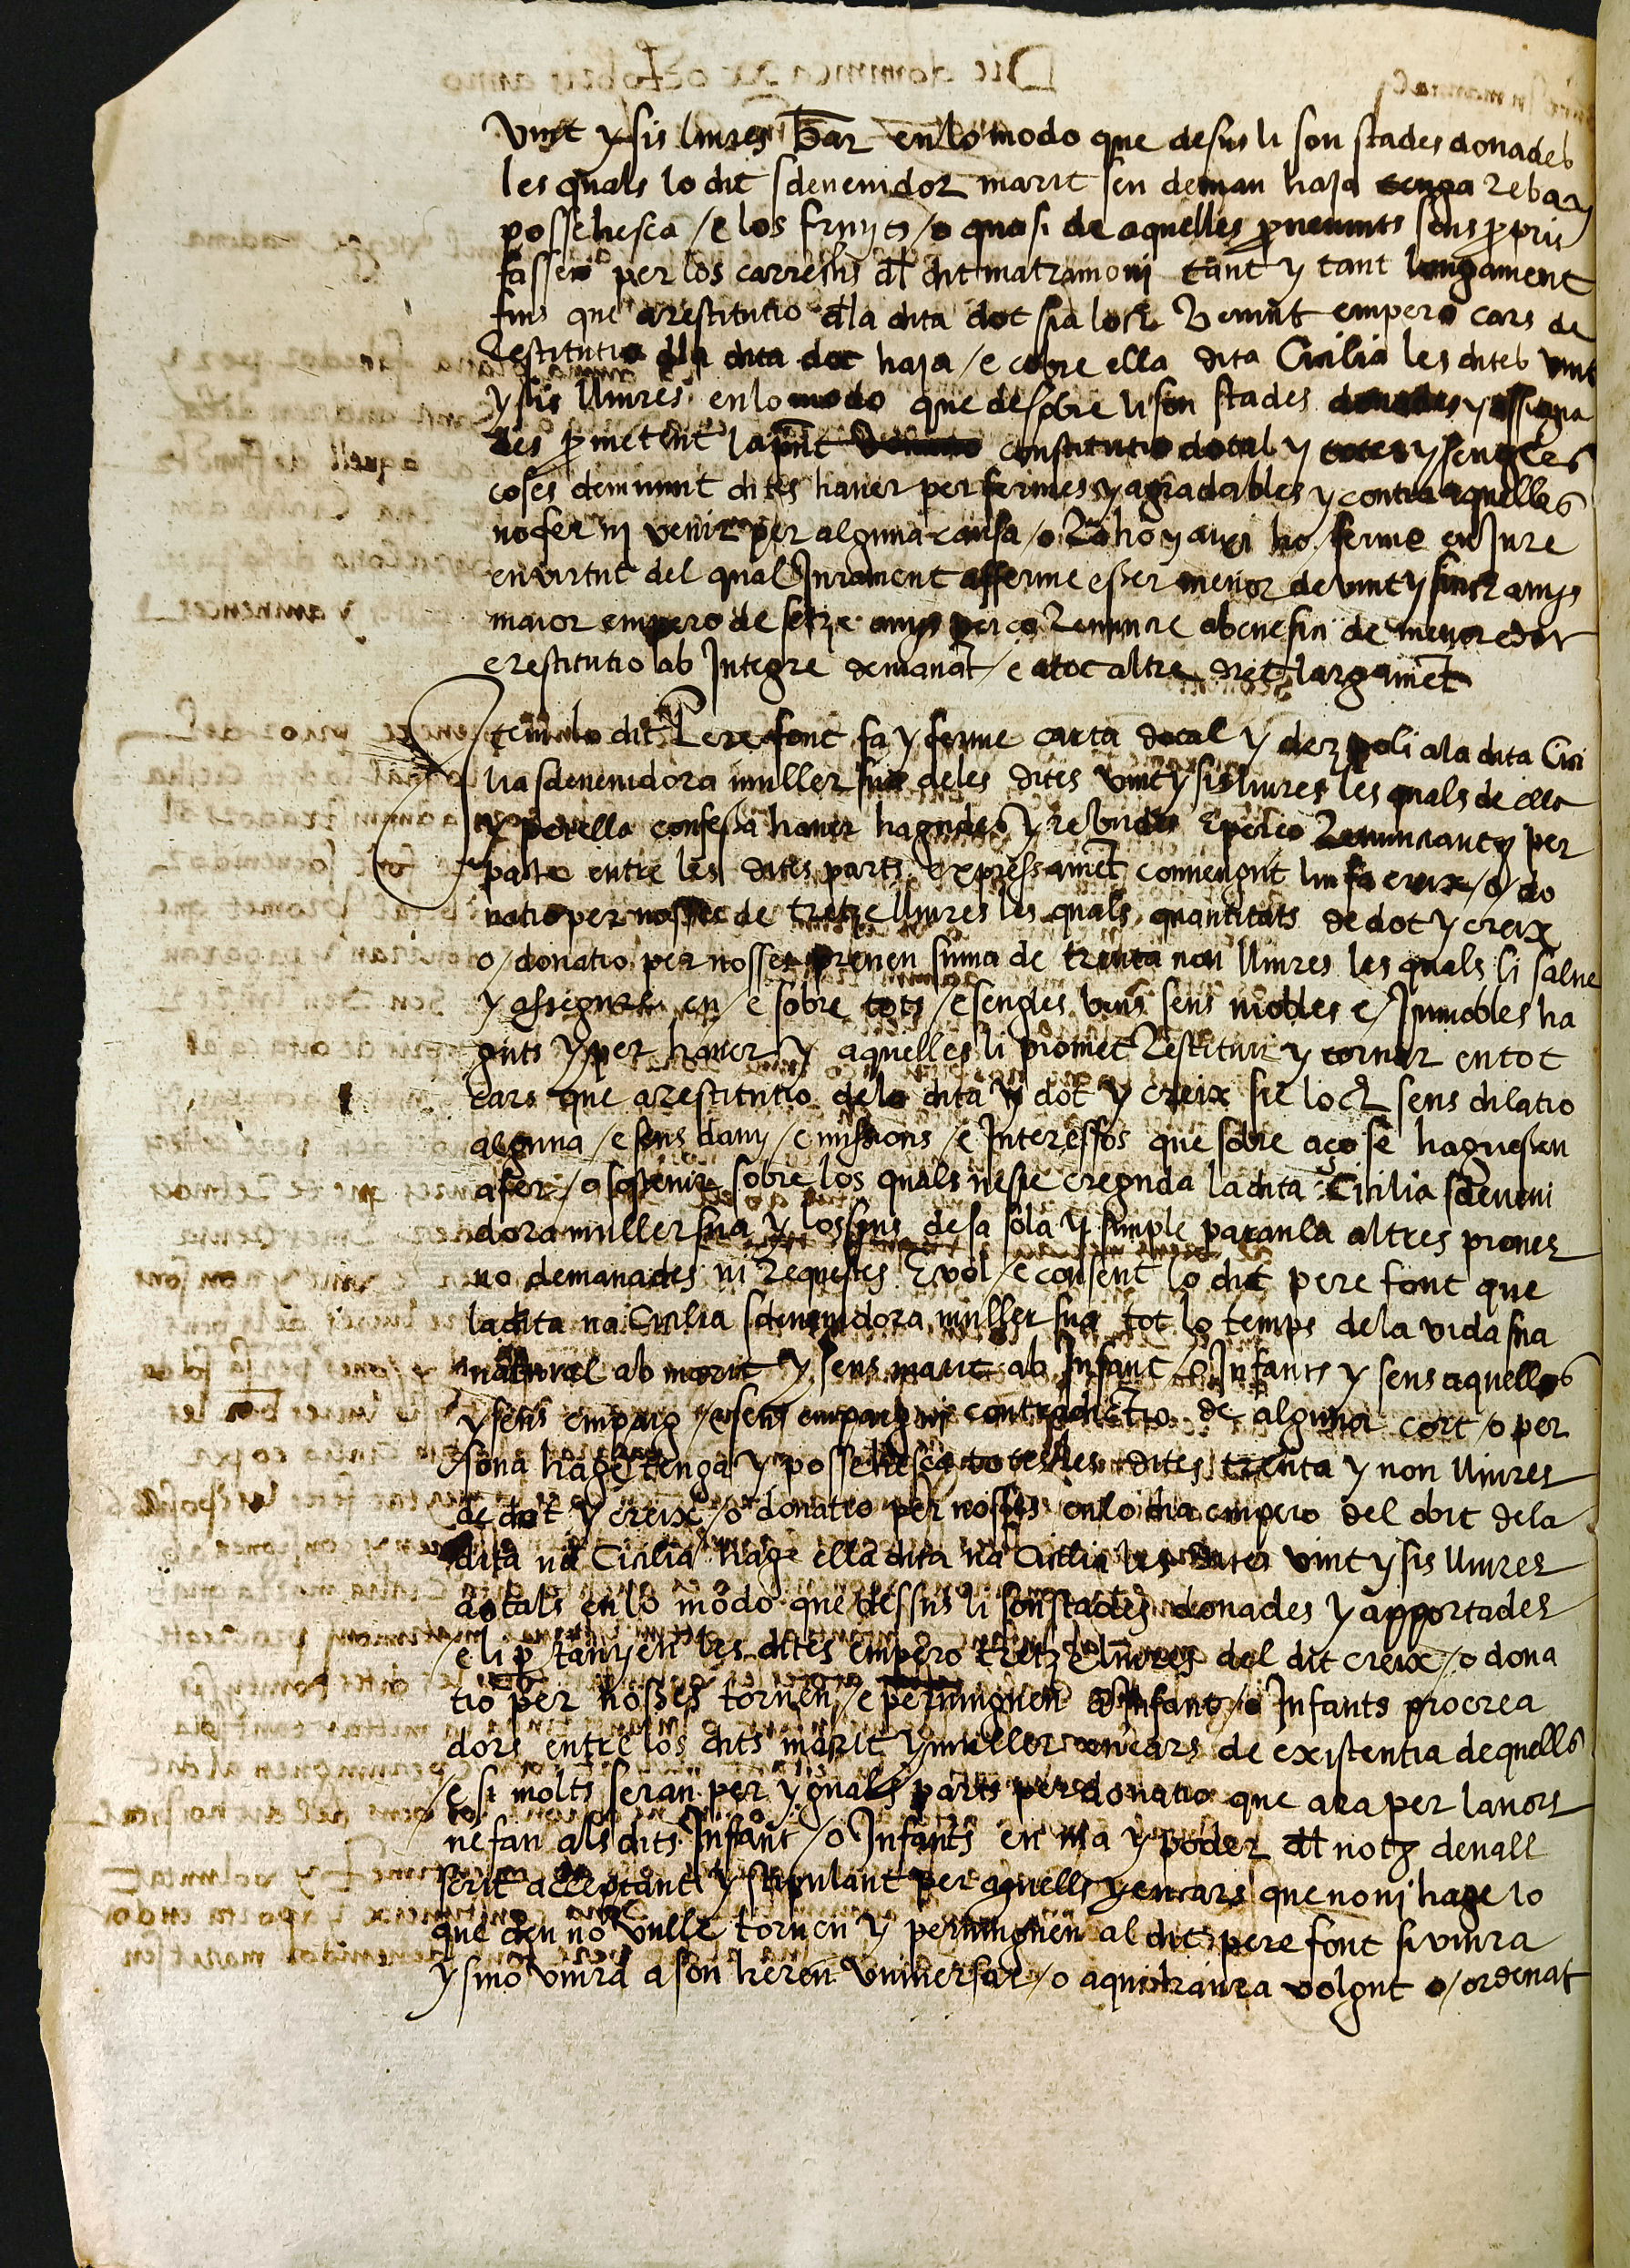 vint y sis liures bar en lo modo que desus li son stades donades
les quals lo dit sdevenidor marit seu deman haja tenga reba y
possehesca / e los fruyts / o quasi de aquelles pnevints sens ppris
fasses per los carrechs dl dit matrimoni tant y tant longament
fins que a restitutio dla dita dot sia loch Venint empero cars de
Restitutio dla dita dot haja / e cobre ella dita Cicilia les dites vint
y sis lliures en lo modo que desobre li son stades donades y assigna
des pmetent la pnt constitutio dotal y totes y sengles
coses demunt dites haver per fermes y agradables y contra aquelles
no fer ni venir per alguna causa / o Raho y axi ho ferme en Jura
en virtut del qual Jurament afferme esser menor de vint y sinch anys
maior empero de setze anys per ço Renuncie a benefici de menor edat
e restitutio ab Integre demanat / e a tot altre dret largamet
Item lo dit Pere font fa y ferme carta dotal y de spoli a la dita Cici
lia sdevenidora muller sua de les dites vint y sis liures les quals de ella
y per ella confessa haver hagudes y rebudes E per ço Renunciant y per
pacte entre les dites parts expressamet convengut lin fa creix / o / do
natio per nosses de tretze lliures les quals quantitats de dot y creix
o / donatio per nosses prenen suma de trenta nou lliures les quals li salve
y assegura en / e sobre tots / e sengles bens sens mobles e / Inmobles ha
guts y per haver y aquelles li promet Restituir y tornar en tot
cars que a restitutio de la dita dot y creix sie loch sens dilatio
alguna / e sens dany / e missions / e Interessos que sobre aço se haguessen
a fer / o sostenir sobre los quals ne sie creguda la dita Cicilia sdeveni
dora muller sua y los seus de sa sola y simple paraula altres proves
no demanades ni Requestes E vol / e consent lo dit pere font que
la dita na Cicilia sdevenidora muller sua tot lo temps de la vida sua
natural ab marit y sens marit ab Infant / o Infants y sens aquells
y sens empaig y contradictio de alguna cort / o per
sona hage tenga y possehesca totes les dites trenta y nou lliures
de dot y creix / o donatio per nosses en lo dia empero del obit de la
dita na Cicilia hage ella dita na Cicilia les dites vint y sis lliures
dotals en lo modo que dessus li son stades donades y apportades
e li ptanyen les dites empero tretze lliures del dit creix / o dona
tio per nosses tornen / e pervinguen a Infant / o Infants procrea
dors entre los dits marit y muller en cars de existentia de quells
e si molts seran per yguals parts per donatio que ara per lavors
ne fan als dits Infant / o Infants en ma y poder dl not devall
scrit acceptant y stipulant per aquells y en cars que no ni hage lo
que deu no vulle tornen y pervinguen al dit pere font si viura
y sino viura a son hereu universal / o a qui haura volgut o / ordenat